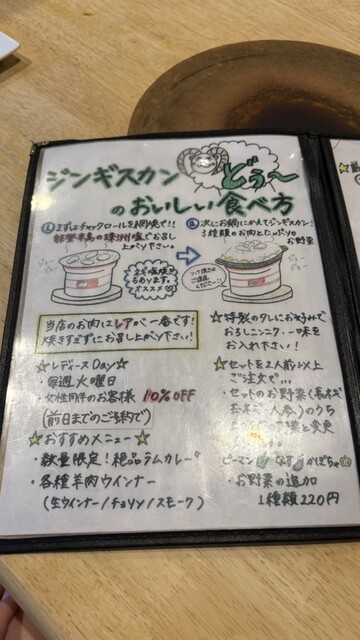 ジンギスカン
どぅ〜
のおいしい食べ方
①まずはチャックロールを網焼で!!
能登半島の珠洲塩でお召し
上がり下さい。
②次にお鍋にかえてジンギスカン!
3種類のお肉とたっぷりの
お野菜
オススメ
当店のお肉はレアが一番です!
焼きすぎずにお召し上がり下さい!
☆特製のタレにお好みで
おろしニンニク、一味を
お入れ下さい!
☆レディースDay☆
・毎週火曜日
・女性同伴のお客様 10%OFF
(前日までのご予約で)
☆おすすめメニュー☆
・数量限定!絶品ラムカレー
・各種羊肉ウインナー
(生ウインナー/チョリソ/スモーク)
☆セットを2人前以上
ご注文で...
・セットのお野菜(長ネギ
玉ネギ、人参)のうち
と変更
ピーマン なす かぼちゃ
・お野菜の追加
1種類220円